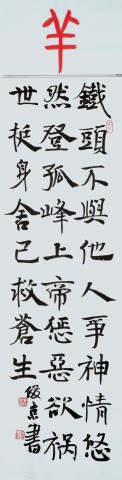 羊
鐵頭不與他人爭神情悠
然登孤峰上帝懲惡欲祸
世挺身舍己救蒼生
俊京書